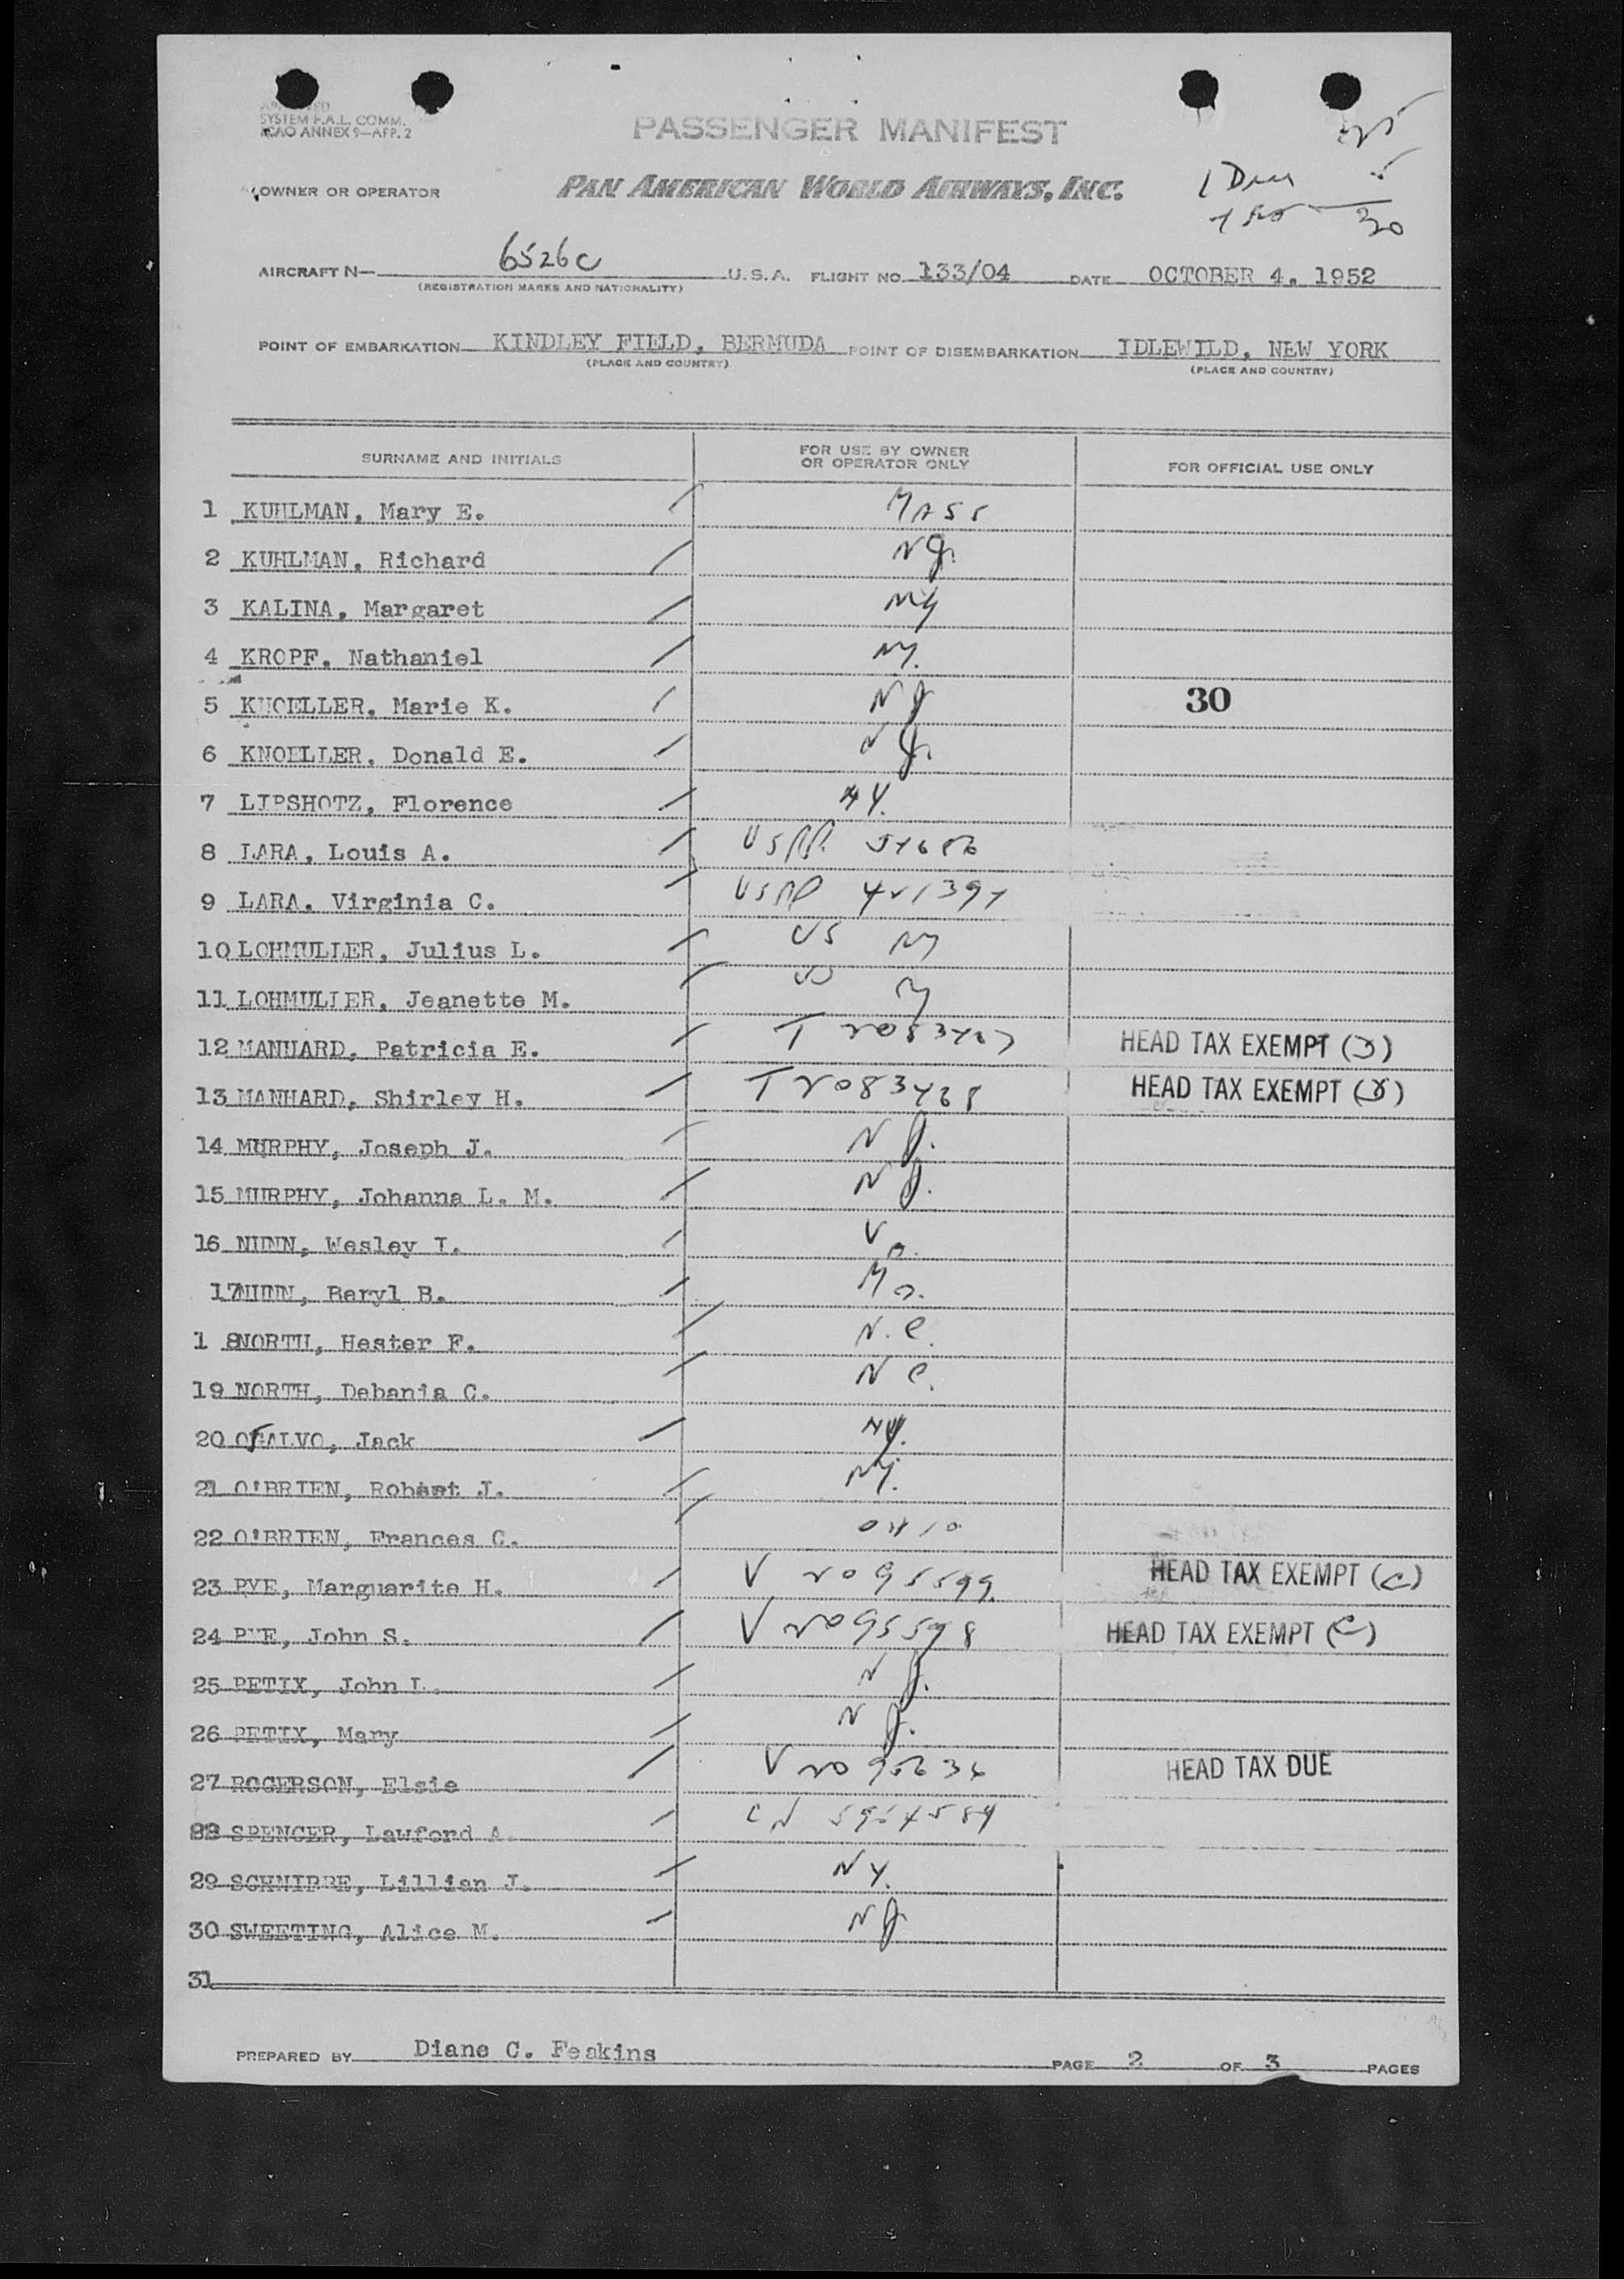 SYSTEM F.A.L. COMM.
ICAO ANNEX 9—APP. 2
PASSENGER MANIFEST
OWNER OR OPERATOR PAN AMERICAN WORLD AIRWAYS, INC.
30
AIRCRAFT N— 6526C U.S.A. FLIGHT NO. 133/04 DATE OCTOBER 4, 1952
(REGISTRATION MARKS AND NATIONALITY)
POINT OF EMBARKATION KINDLEY FIELD, BERMUDA POINT OF DISEMBARKATION IDLEWILD, NEW YORK
(PLACE AND COUNTRY) (PLACE AND COUNTRY)
SURNAME AND INITIALS FOR USE BY OWNER OR OPERATOR ONLY FOR OFFICIAL USE ONLY
1 KUHLMAN, Mary E. MASS
2 KUHLMAN, Richard NJ.
3 KALINA, Margaret NY
4 KROPF, Nathaniel NY.
5 KNOELLER, Marie K. NJ 30
6 KNOELLER, Donald E. NJ.
7 LIPSHOTZ, Florence NY.
8 LARA, Louis A. USPP.
9 LARA, Virginia C. USPP
10 LOHMULLER, Julius L. US NY
11 LOHMULLER, Jeanette M. US NY
12 MANHARD, Patricia E. T HEAD TAX EXEMPT
13 MANHARD, Shirley H. T 2083428 HEAD TAX EXEMPT
14 MURPHY, Joseph J. NJ.
15 MURPHY, Johanna L. M. NJ.
16 NUNN, Wesley I. Va.
17 NUNN, Beryl B.
18 NORTH, Hester F. N.C.
19 NORTH, Debania C. N C.
20 OFALVO, Jack NY.
21 O'BRIEN, Robert J. NY.
22 O'BRIEN, Frances C. OHIO
23 PYE, Marguarite H. V 2095599. HEAD TAX EXEMPT (C)
24 PYE, John S. V 2095598 HEAD TAX EXEMPT (C)
25 PETIX, John L. NJ.
26 PETIX, Mary NJ.
27 ROGERSON, Elsie V HEAD TAX DUE
28 SPENCER, Lawford A.
29 SCHNIBBE, Lillian J. NY.
30 SWEETING, Alice M. NJ
31
PREPARED BY Diane C. Feakins PAGE 2 OF 3 PAGES